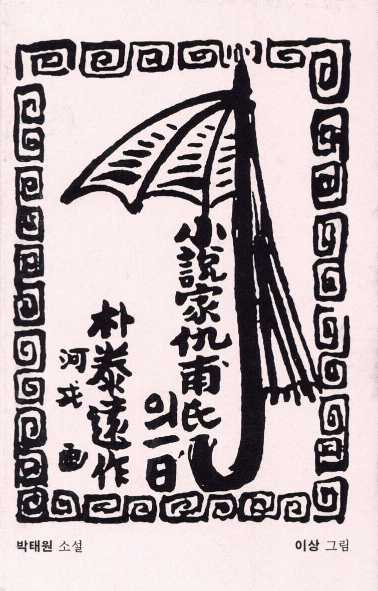 小說家仇甫氏
의一日
朴泰遠作
河戎 画
박태원 소설
이상 그림